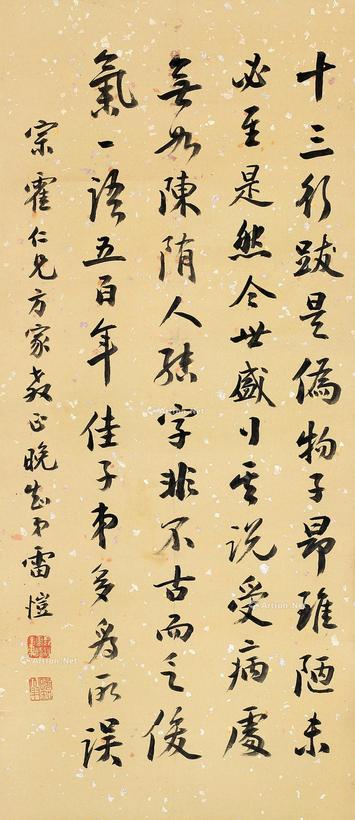 十三行跋是偽物子昂雖陋未
必至是然今世盛行其说受病處
無如陳隋人結字非不古而乏俊
氣一語五百年佳子弟多為所誤
宗霍仁兄方家教正晚弟雷愷
Artron.Net